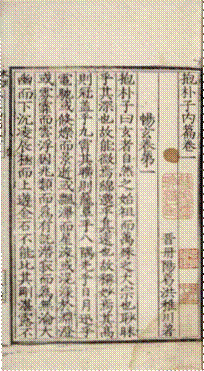 抱朴子內篇卷一
晉丹陽葛洪稚川著
暢玄卷第一
抱朴子曰玄者自然之始祖而萬殊之大宗也眇昧
乎其深也故稱微焉綿邈乎其遠也故稱妙焉其高
則冠蓋乎九霄其曠則籠罩乎八隅光乎日月迅乎
電馳或倏爍而景逝或飄滭而星流或滉漾於淵澄
或雰霏而雲浮因兆類而為有託潛寂而為無淪大
幽而下沉凌辰極而上遊金石不能比其剛湛露不